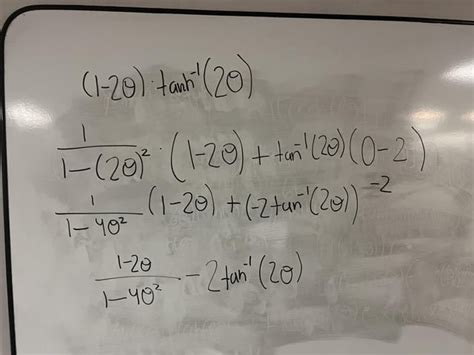 (1-2θ)·tanh⁻¹(2θ)
1/(1-(2θ)²)·(1-2θ)+tan⁻¹(2θ)(0-2)
1/(1-4θ²)(1-2θ)+(-2tan⁻¹(2θ))⁻²
(1-2θ)/(1-4θ²)-2tan⁻¹(2θ)